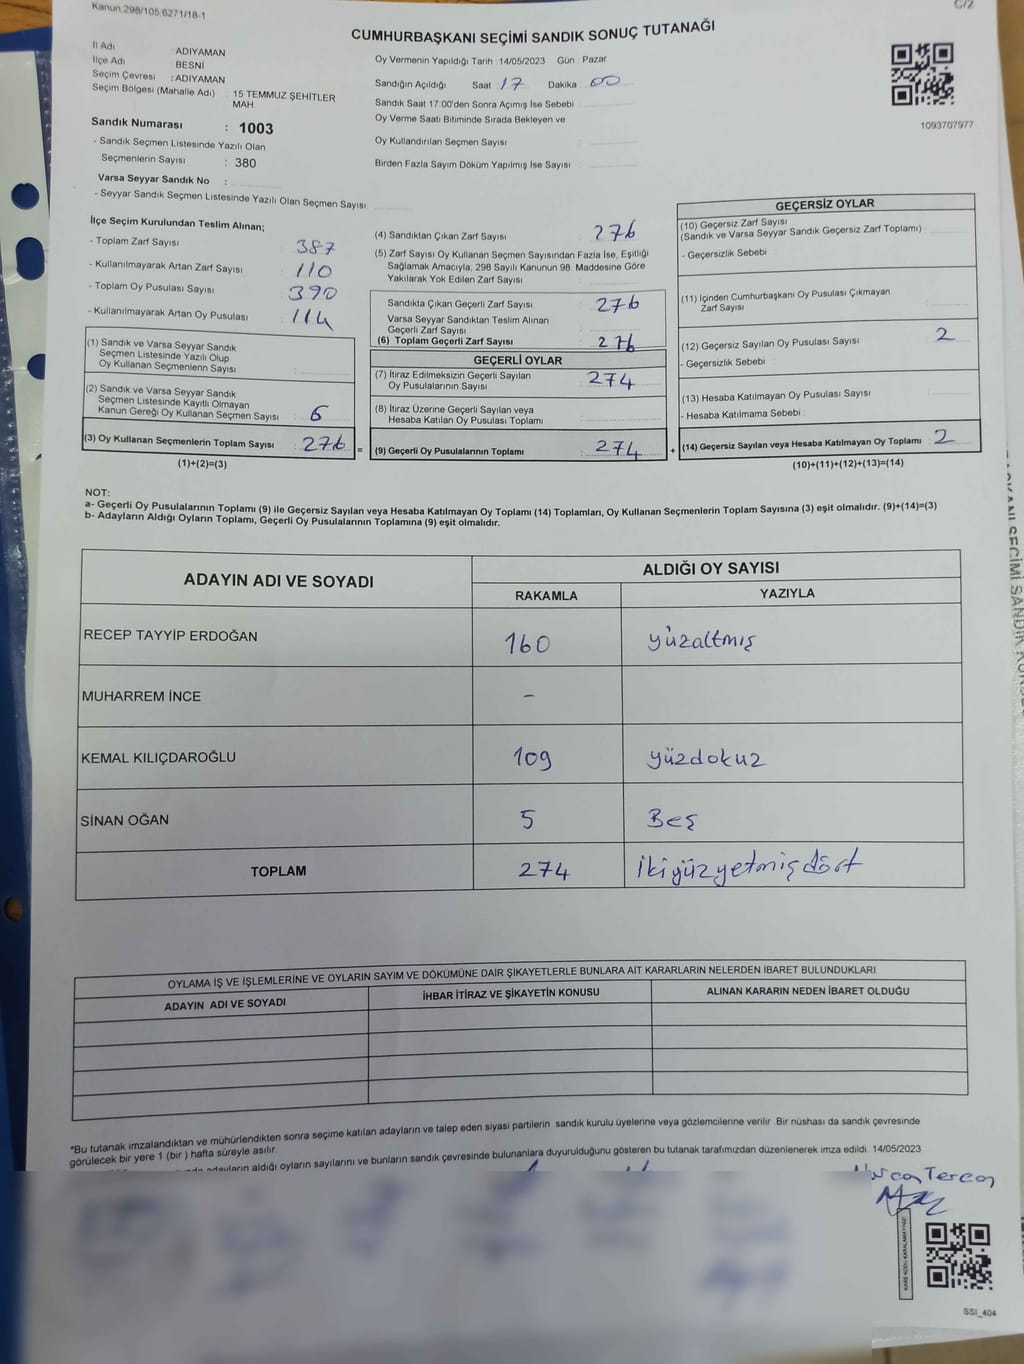 Kanun.298/105.6271/18-1
C/2
CUMHURBAŞKANI SEÇİMİ SANDIK SONUÇ TUTANAĞI
İl Adı ADIYAMAN
İlçe Adı BESNI
Seçim Çevresi : ADIYAMAN
Seçim Bölgesi (Mahalle Adı) 15 TEMMUZ ŞEHİTLER
MAH.
Sandık Numarası : 1003
- Sandık Seçmen Listesinde Yazılı Olan
Seçmenlerin Sayısı : 380
Varsa Seyyar Sandık No :
- Seyyar Sandık Seçmen Listesinde Yazılı Olan Seçmen Sayısı
Oy Vermenin Yapıldığı Tarih : 14/05/2023 Gün : Pazar
Sandığın Açıldığı Saat : 17 Dakika : 00
Sandık Saat 17:00'den Sonra Açımış İse Sebebi :
Oy Verme Saati Bitiminde Sırada Bekleyen ve
Oy Kullandırılan Seçmen Sayısı :
Birden Fazla Sayım Döküm Yapılmış İse Sayısı :
1093707977
İlçe Seçim Kurulundan Teslim Alınan;
- Toplam Zarf Sayısı : 387
- Kullanılmayarak Artan Zarf Sayısı : 110
- Toplam Oy Pusulası Sayısı : 390
- Kullanılmayarak Artan Oy Pusulası : 114
(1) Sandık ve Varsa Seyyar Sandık
Seçmen Listesinde Yazılı Olup
Oy Kullanan Seçmenlerin Sayısı :
(2) Sandık ve Varsa Seyyar Sandık
Seçmen Listesinde Kayıtlı Olmayan
Kanun Gereği Oy Kullanan Seçmen Sayısı : 6
(3) Oy Kullanan Seçmenlerin Toplam Sayısı : 276
(1)+(2)=(3)
(4) Sandıktan Çıkan Zarf Sayısı : 276
(5) Zarf Sayısı Oy Kullanan Seçmen Sayısından Fazla İse, Eşitliği
Sağlamak Amacıyla, 298 Sayılı Kanunun 98. Maddesine Göre
Yakılarak Yok Edilen Zarf Sayısı :
Sandıkta Çıkan Geçerli Zarf Sayısı : 276
Varsa Seyyar Sandıktan Teslim Alınan
Geçerli Zarf Sayısı :
(6) Toplam Geçerli Zarf Sayısı : 276
GEÇERLİ OYLAR
(7) İtiraz Edilmeksizin Geçerli Sayılan
Oy Pusulalarının Sayısı : 274
(8) İtiraz Üzerine Geçerli Sayılan veya
Hesaba Katılan Oy Pusulası Toplamı :
= (9) Geçerli Oy Pusulalarının Toplamı : 274
GEÇERSİZ OYLAR
(10) Geçersiz Zarf Sayısı
(Sandık ve Varsa Seyyar Sandık Geçersiz Zarf Toplamı) :
- Geçersizlik Sebebi :
(11) İçinden Cumhurbaşkanı Oy Pusulası Çıkmayan
Zarf Sayısı :
(12) Geçersiz Sayılan Oy Pusulası Sayısı : 2
- Geçersizlik Sebebi :
(13) Hesaba Katılmayan Oy Pusulası Sayısı :
- Hesaba Katılmama Sebebi :
+ (14) Geçersiz Sayılan veya Hesaba Katılmayan Oy Toplamı : 2
(10)+(11)+(12)+(13)=(14)
NOT:
a- Geçerli Oy Pusulalarının Toplamı (9) ile Geçersiz Sayılan veya Hesaba Katılmayan Oy Toplamı (14) Toplamları, Oy Kullanan Seçmenlerin Toplam Sayısına (3) eşit olmalıdır. (9)+(14)=(3)
b- Adayların Aldığı Oyların Toplamı, Geçerli Oy Pusulalarının Toplamına (9) eşit olmalıdır.
ADAYIN ADI VE SOYADI ALDIĞI OY SAYISI
RAKAMLA YAZIYLA
RECEP TAYYİP ERDOĞAN 160 yüzaltmış
MUHARREM İNCE -
KEMAL KILIÇDAROĞLU 109 yüzdokuz
SİNAN OĞAN 5 Beş
TOPLAM 274 ikiyüzyetmişdört
OYLAMA İŞ VE İŞLEMLERİNE VE OYLARIN SAYIM VE DÖKÜMÜNE DAİR ŞİKAYETLERLE BUNLARA AİT KARARLARIN NELERDEN İBARET BULUNDUKLARI
ADAYIN ADI VE SOYADI İHBAR İTİRAZ VE ŞİKAYETİN KONUSU ALINAN KARARIN NEDEN İBARET OLDUĞU
*Bu tutanak imzalandıktan ve mühürlendikten sonra seçime katılan adayların ve talep eden siyasi partilerin sandık kurulu üyelerine veya gözlemcilerine verilir. Bir nüshası da sandık çevresinde
görülecek bir yere 1 (bir ) hafta süreyle asılır.
adayların aldığı oyların sayılarını ve bunların sandık çevresinde bulunanlara duyurulduğunu gösteren bu tutanak tarafımızdan düzenlenerek imza edildi. 14/05/2023
KARE KODU KARALAMAYINIZ!
SSI_404